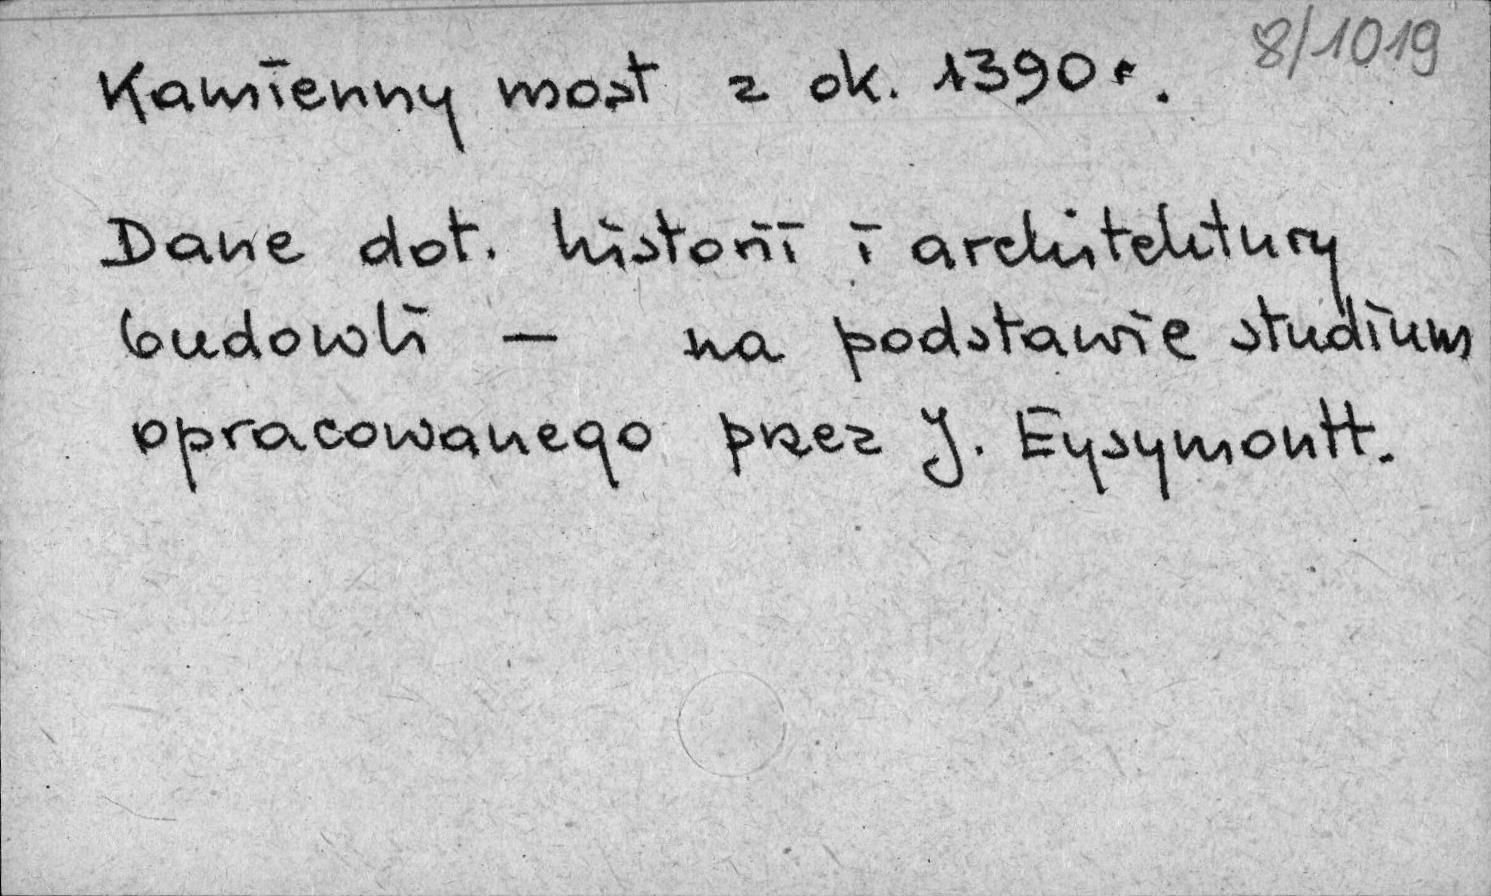 8/1019
Kamienny most z ok. 1390 r.
Dane dot. historii i architektury
budowli — na podstawie studium
opracowanego przez J. Eysymontt.